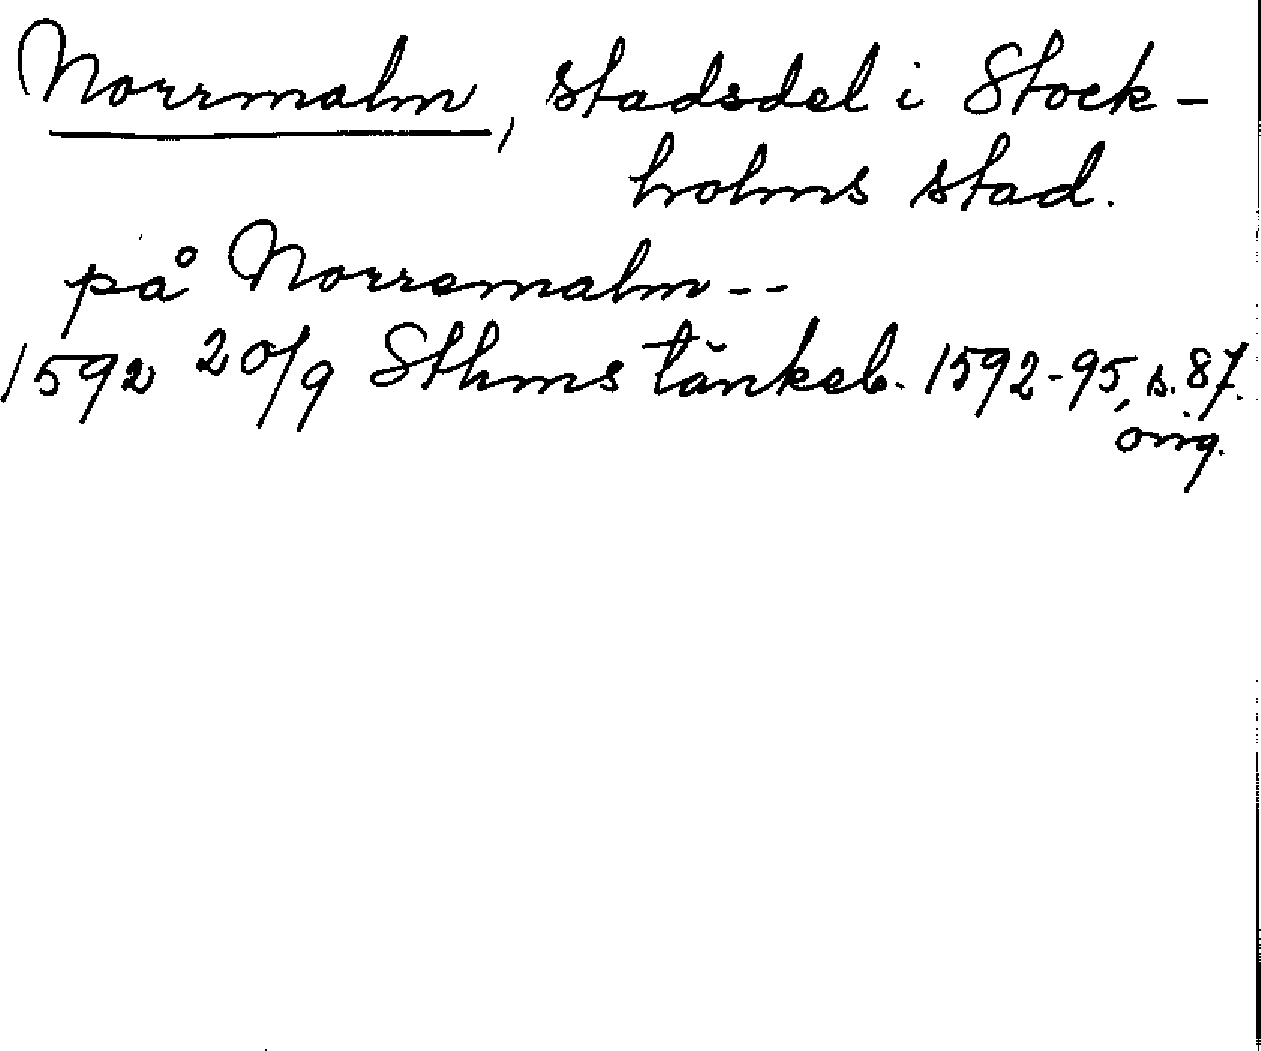 Norrmalm, stadsdel i Stock-
holms stad.
på Norremalm --
1592 20/9 Sthms tänkeb. 1592-95, s. 87.
orig.